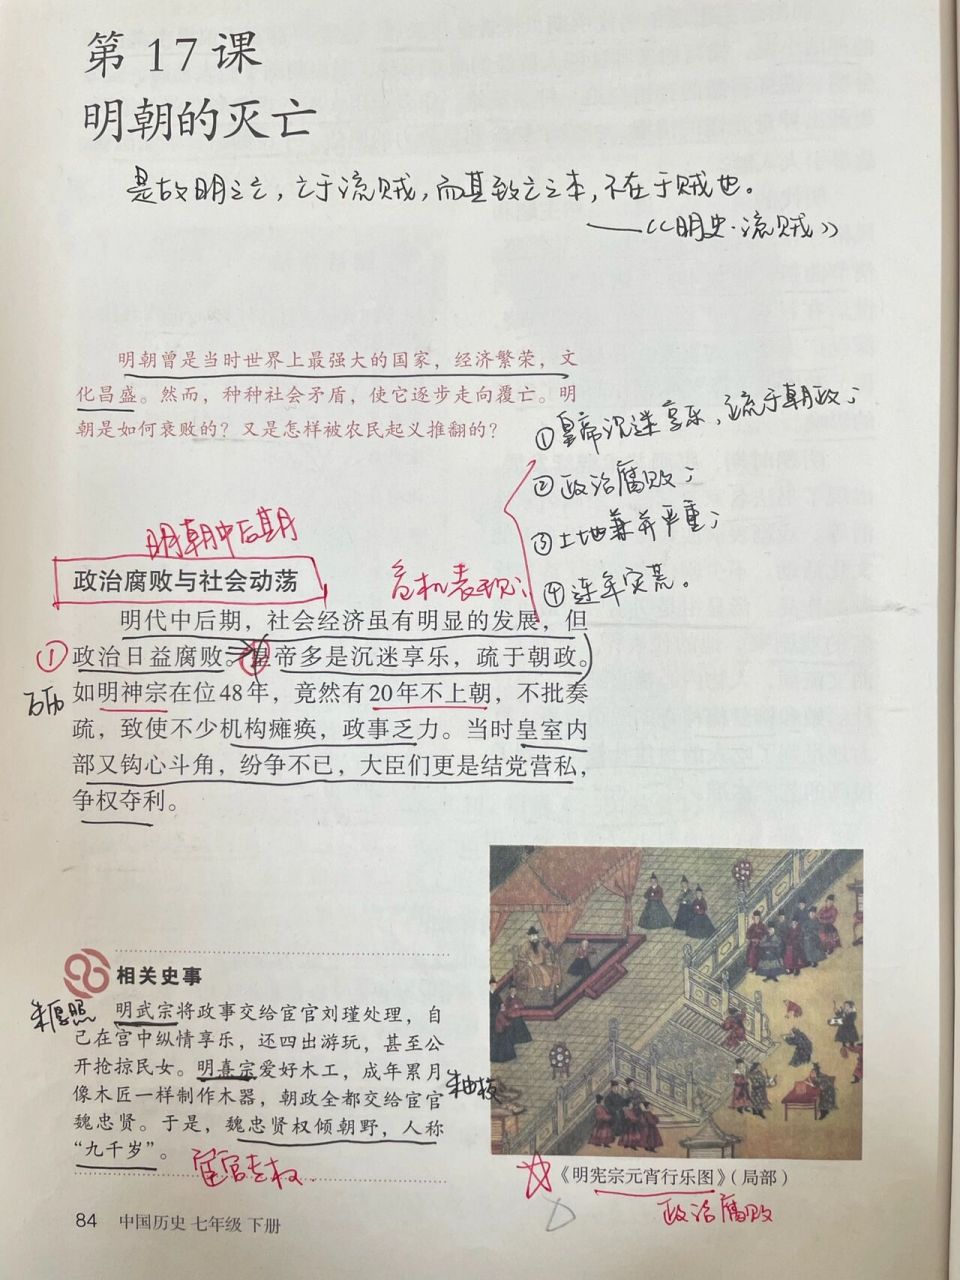 第 17 课
明朝的灭亡
是故明之亡，亡于流贼，而其致亡之本，不在于贼也。
——《明史·流贼》
明朝曾是当时世界上最强大的国家，经济繁荣，文
化昌盛。然而，种种社会矛盾，使它逐步走向覆亡。明
朝是如何衰败的？又是怎样被农民起义推翻的？
①皇帝沉迷享乐，疏于朝政；
②政治腐败；
③土地兼并严重；
④连年灾荒。
危机表现：
明朝中后期
政治腐败与社会动荡
明代中后期，社会经济虽有明显的发展，但
①政治日益腐败。皇帝多是沉迷享乐，疏于朝政。
如明神宗在位48年，竟然有20年不上朝，不批奏
疏，致使不少机构瘫痪，政事乏力。当时皇室内
部又钩心斗角，纷争不已，大臣们更是结党营私，
争权夺利。
相关史事
朱厚照
明武宗将政事交给宦官刘瑾处理，自
己在宫中纵情享乐，还四出游玩，甚至公
开抢掠民女。明熹宗爱好木工，成年累月
像木匠一样制作木器，朝政全都交给宦官
魏忠贤。于是，魏忠贤权倾朝野，人称
“九千岁”。
宦官专权
《明宪宗元宵行乐图》（局部）
政治腐败
84 中国历史 七年级 下册